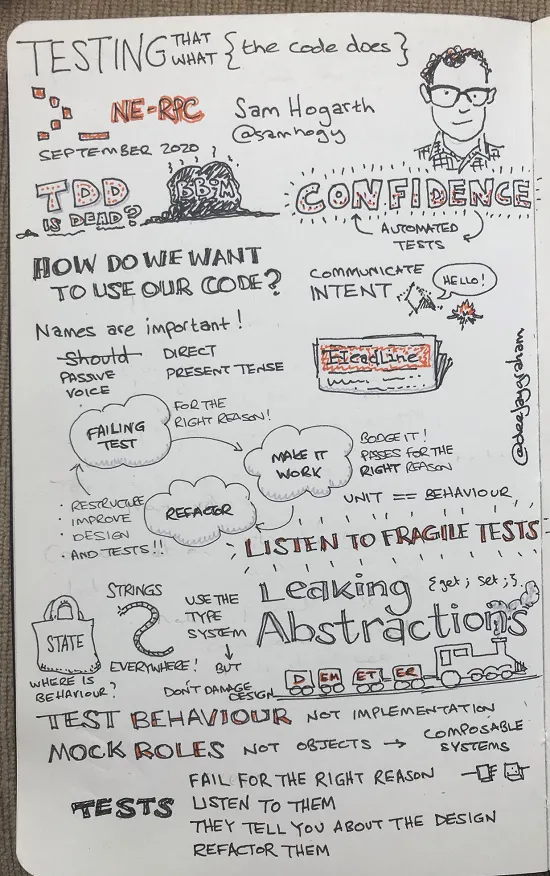 TESTING THAT WHAT { the code does }
NE-RPC
Sam Hogarth
@samhogy
SEPTEMBER 2020
TDD
IS DEAD?
BBoM
CONFIDENCE
AUTOMATED
TESTS
HOW DO WE WANT
TO USE OUR CODE?
COMMUNICATE
INTENT
HELLO!
Names are important!
Should
PASSIVE
VOICE
DIRECT
PRESENT TENSE
HeadLine
@deejaygraham
FAILING
TEST
FOR THE
RIGHT REASON!
MAKE IT
WORK
BODGE IT!
PASSES FOR THE
RIGHT REASON
REFACTOR
· RESTRUCTURE
· IMPROVE
· DESIGN
· AND TESTS!!
UNIT == BEHAVIOUR
LISTEN TO FRAGILE TESTS
STATE
WHERE IS
BEHAVIOUR?
STRINGS
EVERYWHERE!
USE THE
TYPE
SYSTEM
BUT
DON'T DAMAGE
DESIGN
Leaking
Abstractions
{get; set;}
D EM ET ER
TEST BEHAVIOUR NOT IMPLEMENTATION
MOCK ROLES NOT OBJECTS → COMPOSABLE
SYSTEMS
TESTS
FAIL FOR THE RIGHT REASON
LISTEN TO THEM
THEY TELL YOU ABOUT THE DESIGN
REFACTOR THEM